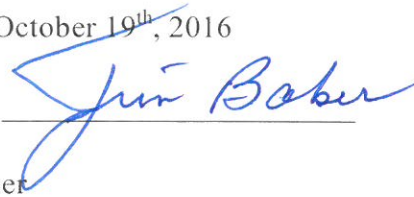 October 19th, 2016
Jim Baker
er